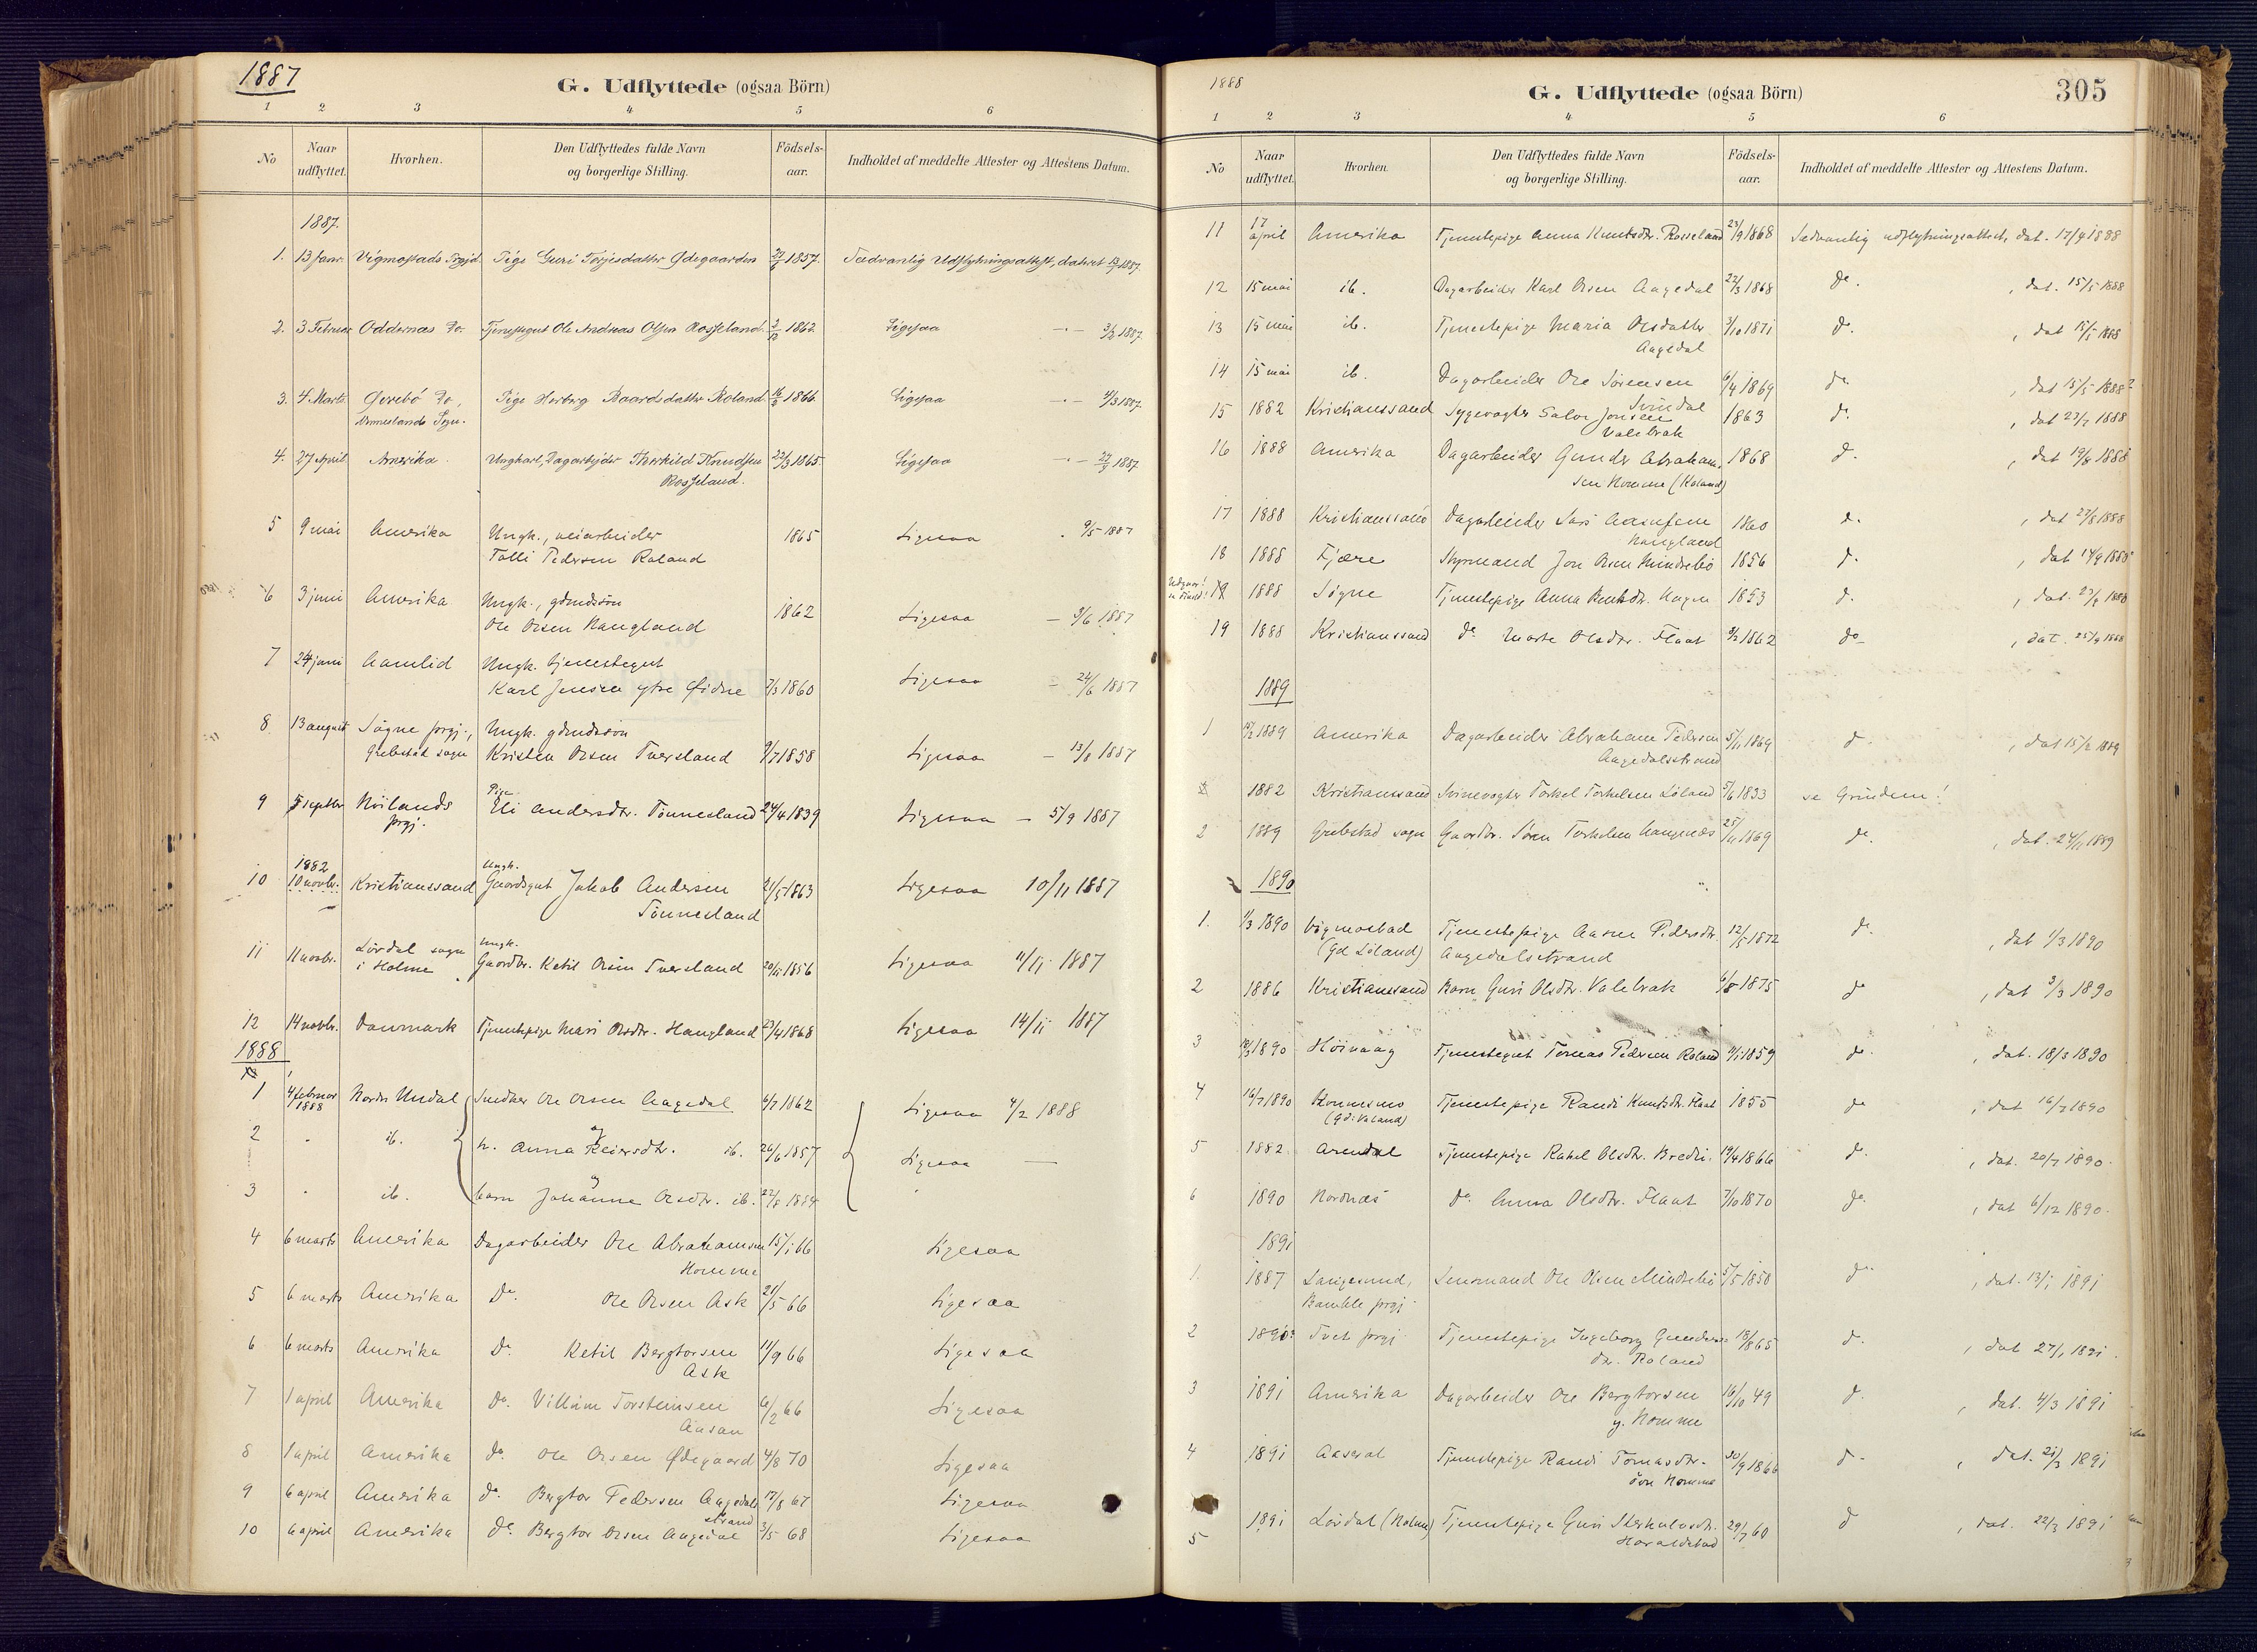 1887
G. Udflyttede (ogsaa Börn)
1 2 3 4 5 6
No Naar udflyttet. Hvorhen. Den Udflyttedes fulde Navn og borgerlige Stilling. Födsels-aar. Indholdet af meddelte Attester og Attestens Datum.
1887.
1. 13 Janr. Vigmostads Prgjd. Pige Guri Terjesdatter Ødegaarden 1857. Sædvanlig Udflytningsattest, dateret 13/1 1887.
2. 3 Februar Oddernæs Do Tjenestegut Ole Andreas Olsen Rosseland. 1862 Ligesaa 3/2 1887.
3. 4 Marts Øvrebö Do, Pige Hertvig Baardsdatter Roland 1866 Ligesaa 4/3 1887.
Sogn.
4. 27 April Amerika Ungkarl, Dagarbejder Therkild Knudsen 22/3 1865. Ligesaa 1887
Rosseland.
5 9 mai Amerika Ungk., veiarbeider 1865 Ligesaa 9/5 1887
Tolli Pedersen Roland
6 3 juni Amerika Ungk., gdmdssön 1862 Ligesaa – 3/6 1887
Ole Olsen Haugland
7 24 juni Aamlid Ungk. tjenestegut
Karl Jensen ytre Øidne 7/3 1860 Ligesaa – 24/6 1887
8 13 august Sögne prgj., Ungk. gdmdssön
Grebstad sogn Kristen Olsen Tversland 9/7 1858 Ligesaa – 13/8 1887
9 5 septbr Höilands Pige Eli Andersdtr. Tönnesland 24/4 1839 Ligesaa – 5/9 1887
prgj.
1882 Ungk.
10 10 novbr. Kristianssand Gaardsgut Jakob Andersen 21/5 1863 Ligesaa 10/11 1887
Tönnesland
11 11 novbr. Lövdal sogn Ungk.
i Holme Gaardbr. Ketil Olsen Tversland 20/11 1856 Ligesaa 11/11 1887
12 14 novbr. Danmark Tjenestepige Mari Olsdtr. Haugland 23/4 1868 Ligesaa 14/11 1887
1888
1 4 februar 1888 Nordre Undal Ole Olsen Aagedal 6/7 1862 Ligesaa 4/2 1888
2 " ib. h. Anna Reiersdtr. ib. 26/6 1857 Ligesaa —
3 " ib. barn Johanne Olsdtr. ib. 22/8 1884 "
4 6 marts Amerika Dagarbeider Ole Abrahamsen 15/1 66 Ligesaa
Homme
5 6 marts Amerika Do. Ole Olsen Ask 21/5 66 Ligesaa
6 6 marts Amerika Do. Ketil Bergtorsen 11/9 66 Ligesaa
Ask
7 1 april Amerika Do. Villum Torsteinsen 6/2 66 Ligesaa
Aasan
8 1 april Amerika Do. Ole Olsen Ødegaard 4/8 70 Ligesaa
9 6 april Amerika Do. Bergtor Pedersen Aagedals 17/8 67 Ligesaa
strand
10 6 april Amerika Do. Bergtor Olsen Aagedal 3/5 68 Ligesaa
1888
G. Udflyttede (ogsaa Börn)
305
1 2 3 4 5 6
No Naar udflyttet. Hvorhen. Den Udflyttedes fulde Navn og borgerlige Stilling. Födsels-aar. Indholdet af meddelte Attester og Attestens Datum.
11 17 april Amerika Tjenestepige Anna Knutsdtr. Rosseland 23/9 1868 Sædvanlig udflytningsattest, dat. 17/4 1888
12 15 mai ib. Dagarbeider Karl Olsen Aagedal 22/3 1868 do. , dat. 15/5 1888
13 15 mai ib. Tjenestepige Maria Olsdatter 3/10 1871 do. , dat 15/5 1888
Aagedal
14 15 mai ib. Dagarbeider Ole Sörensen 6/4 1869 do. , dat 15/5 1888
Svindal
15 1882 Kristianssand Sygevogter Salve Jonsen 1863 do. , dat 23/7 1888
Valebrak
16 1888 Amerika Dagarbeider Gunder Abraham- 1868 do. , dat 19/8 1888
sen Homme (Roland)
17 1888 Kristianssand Dagarbeider Lars Aanensen 1860 do. , dat 27/8 1888
Haugland
18 1888 Fjære Styrmand Jon Olsen Mindrebö 1856 do. , dat 14/9 1888
19 1888 Sögne Tjenestepige Anna Haugen 1853 do. , dat. 1888
19 1888 Kristianssand do Marte Olsdtr. Flaat 3/2 1862 do , dat. 25/9 1888
1889
1 15/2 1889 Amerika Dagarbeider Abraham Pedersen 5/11 1869 do. , dat 15/2 1889
Aagedalsstrand
1882 Kristianssand Svinevogter Torkel Torkelsen Löland 5/6 1833 se Grunden!
2 1889 Grebstad sogn Gaardbr. Sören Torkelsen 25/11 1869 do. , dat. 24/11 1889
1890
1. 1/3 1890 Vigmostad Tjenestepige Aasne Pedersdtr. 12/5 1872 do. , dat 1/3 1890
(Gd Löland) Aagedalsstrand
2 1886 Kristianssand Barn Guri Olsdtr. Valebrak 6/8 1875 do , dat 3/3 1890
3 18/3 1890 Höivaag Tjenestegut Tomas Pedersen Roland 1859 do. , dat. 18/3 1890
4 16/7 1890 Tjenestepige Randi Knutsdtr. Flaat 1855 do , dat 16/7 1890
5 1882 Arendal Tjenestepige Rakel Olsdtr. Bredli. 19/4 1866 do. , dat. 20/7 1890.
6 1890 Nordnæs Do. Anna Olsdtr. Flaat 7/10 1870 do. , dat 6/12 1890.
1891
1. 1887 Langesund, Lensmand Ole Olsen Mindrebö 5/5 1850 do. , dat. 13/1 1891
Bamble prgj.
2 1890 Tvet prgj. Tjenestepige Ingeborg Gunders- 18/8 65 do. , dat 27/1 1891.
dtr. Roland
3 1891 Amerika Dagarbeider Ole Bergtorsen 16/10 49 do. , dat. 4/3 1891
y. Homme
4 1891 Aaseral Tjenestepige Randi Tomasdtr. 30/9 1866 do. , dat. 21/3 1891
övre Homme
5 1891 Lövdal (Holum) Tjenestepige Guri Sterkulvsdtr. 29/7 60 do , dat. 22/3 1891
Haraldstad